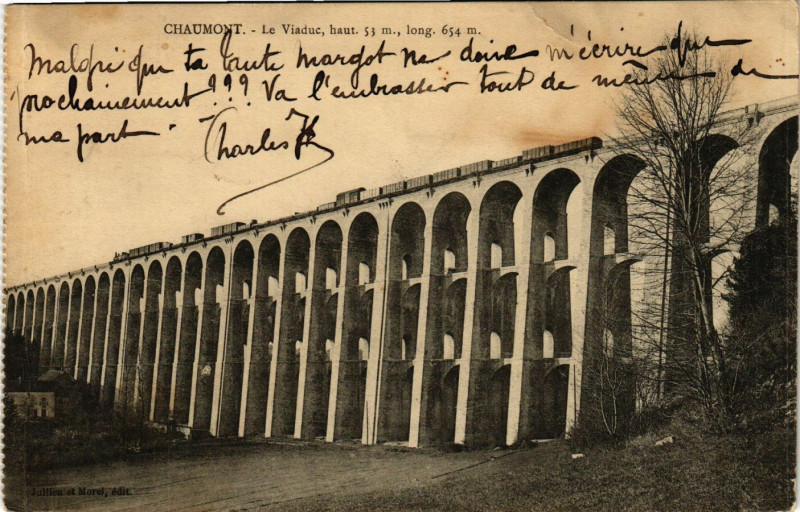 CHAUMONT. - Le Viaduc, haut. 53 m., long. 654 m.
Malgré que ta toute margot ne doive m'écrire que
prochainement??? Va l'embrasser tout de même de
ma part. Charles
Jullien et Morel, édit.